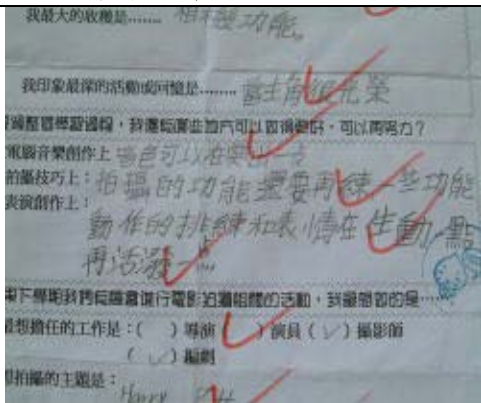 我最大的收穫是........ 相機功能。
我印象最深的活動或回憶是........ 當主角很光榮
整個學習過程，我還有哪些地方可以做得更好，可以再努力？
電腦音樂創作上 音色可以在突出一支
拍攝技巧上：拍攝的功能還要再練一些功能
表演創作上：動作的排練和表情在生動一點
再活潑一點
下學期我們有機會進行電影拍攝相關的活動，我最想做的是……
最想擔任的工作是：（　）導演（　）演員（✓）攝影師
（✓）編劇
拍攝的主題是：Harry